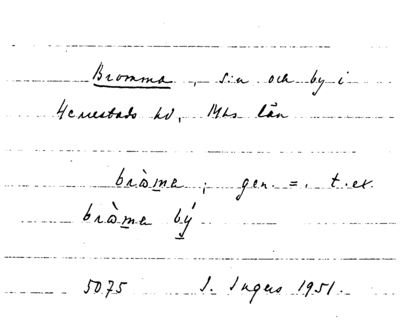 Bromma, s:n och by i
Herrestads hd, Mhs län
bròma; gen. =. t.ex.
bròma bý
5075 I. Ingers 1951.